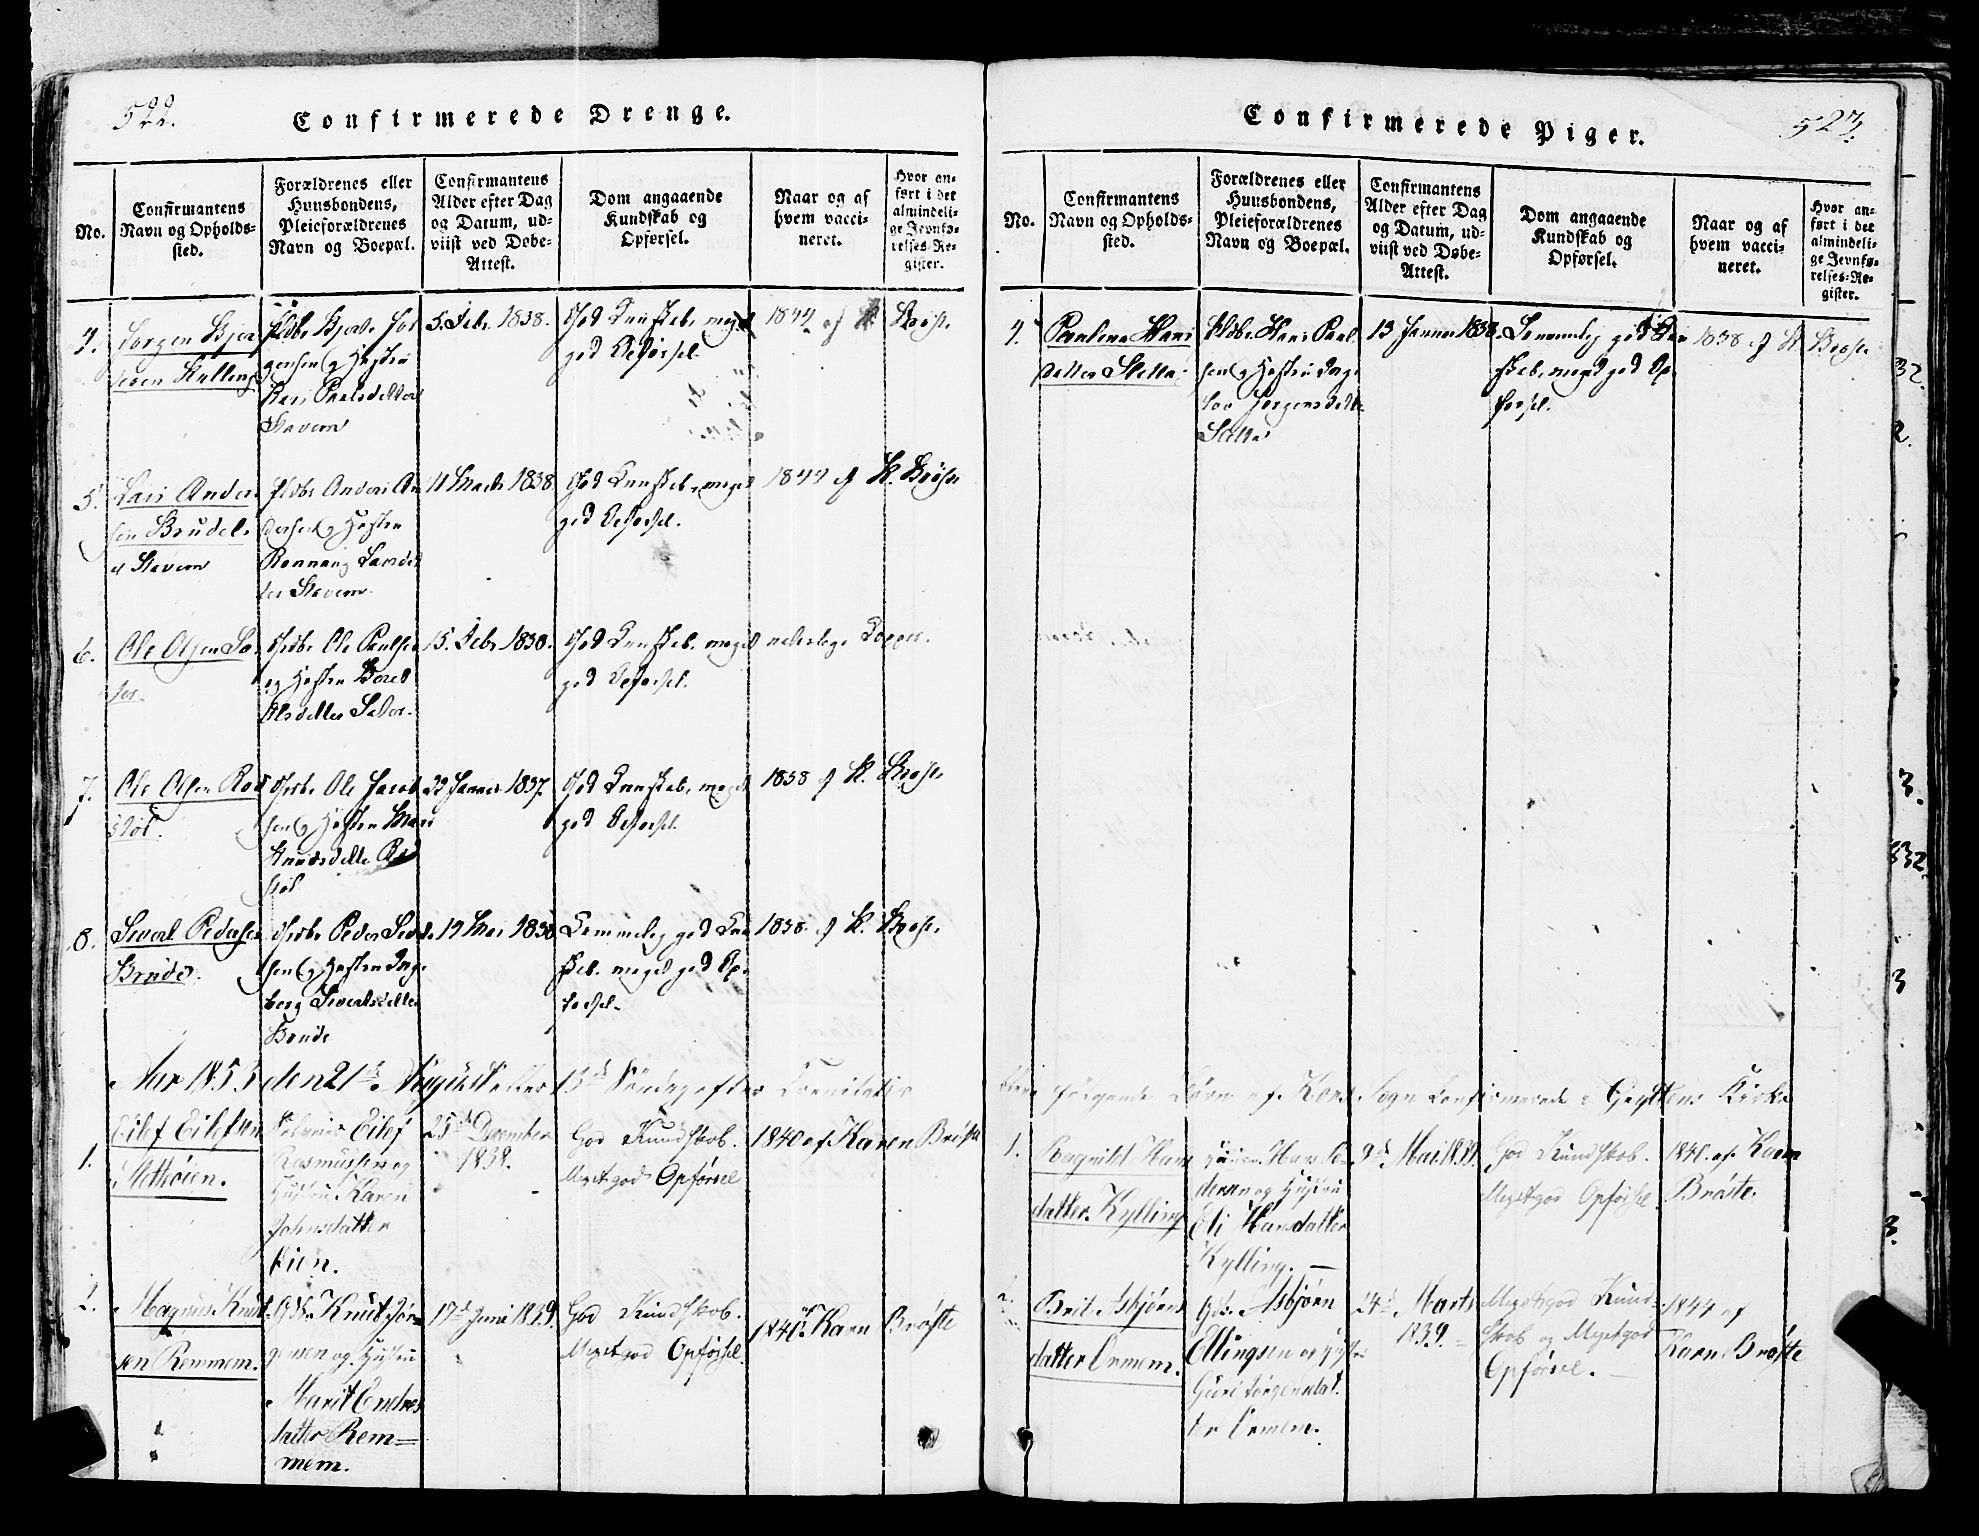 522.
Confirmerede Drenge.
No.
Confirmantens
Navn og Opholds-
sted.
Forældrenes eller
Huusbondens,
Pleieforældrenes
Navn og Boepæl.
Confirmantens
Alder efter Dag
og Datum, ud-
viist ved Døbe-
Attest.
Dom angaaende
Kundskab og
Opførsel.
Naar og af
hvem vacci-
neret.
Hvor an-
ført i det
almindeli-
ge Jevnfø-
relses-Re-
gister.
4.
Jørgen
og Hustru
Kari Paalsdatter
Stavem
5. Febr 1838.
God Kundskab, meget
god Opførsel.
1844 af K Brøste
5.
Lars Ander
sen Brude
Stavem
Anders An
dersen og Hustru
Larsdat
ter Stavem
11 Marts 1838
God Kundskab, meget
god Opførsel.
1844 af K. Brøste
6.
Ole Olsen
Ole Paulsen
og Hustru
15. Febr 1838.
God Kundskab, meget
god Opførsel.
naturlige Kopper.
7.
Ole Olsen Rød
støl.
Ole Jacob
sen og Hustru
Knudsdatter Rød
støl
Januar 1837.
God Kundskab, meget
god Opførsel.
1838 af K. Brøste
8.
Sivert Pedersen
Brude
Peder
sen og Hustru Inge
borg Sivertsdatter
Brude
19 Mai 1838
Temmelig god Kund
skab, meget god Op-
førsel.
1838 af K. Brøste
Aar 1853 den 21de August eller 13de Søndag efter Trinitatis
1.
Eilef Eilefsen
Eilef
Rasmussen og
Hustru Karen
Johnsdatter
Øien.
25de December
1838.
God Kundskab.
Megetgod Opførsel
1840 af Karen Brøste
2.
Magnus Knut
sen Remmem.
Gbr. Knut Jør
gensen og Hustru
Marit Endres
datter Rem=
mem.
17de Juni 1839.
God Kundskab.
Megetgod Opførsel.
1840 af Karn Brøste
523.
Confirmerede Piger.
No.
Confirmantens
Navn og Opholds-
sted.
Forældrenes eller
Huusbondens,
Pleieforældrenes
Navn og Boepæl.
Confirmantens
Alder efter Dag
og Datum, ud-
viist ved Døbe-
Attest.
Dom angaaende
Kundskab og
Opførsel.
Naar og af
hvem vacci-
neret.
Hvor an-
ført i det
almindeli-
ge Jevnfø-
relses-Re-
gister.
4.
Paulina Hans
datter
Hans Paul
sen og Hustru Inge
Jørgensdatter
13 Januar 1838.
Temmelig god Kund
skab, meget god Op-
førsel.
1838 af K Brøste
følgende Børn af Kors Sogn Confirmerede i Gryttens Kirke
1.
Ragnild Hans
datter Kylling
Hans Pe-
dersen og Hustru
Eli Hansdatter
Kylling. —
9de Mai 1839.
God Kundskab.
Megetgod Opførsel
1840. af Karn
Brøste.
2.
Brit Asbjørns
datter Ormem.
Gbr. Asbjørn
Ellingsen og Hustru
Guri Jørgensdat
ter Ormem.
24de Marts
1839.
Megetgod Kund-
skab og Megetgod
Opførsel.
1844 af
Karn Brøste
32.
2.
3.
332.
3
3.